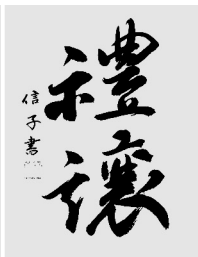 禮讓
信子書